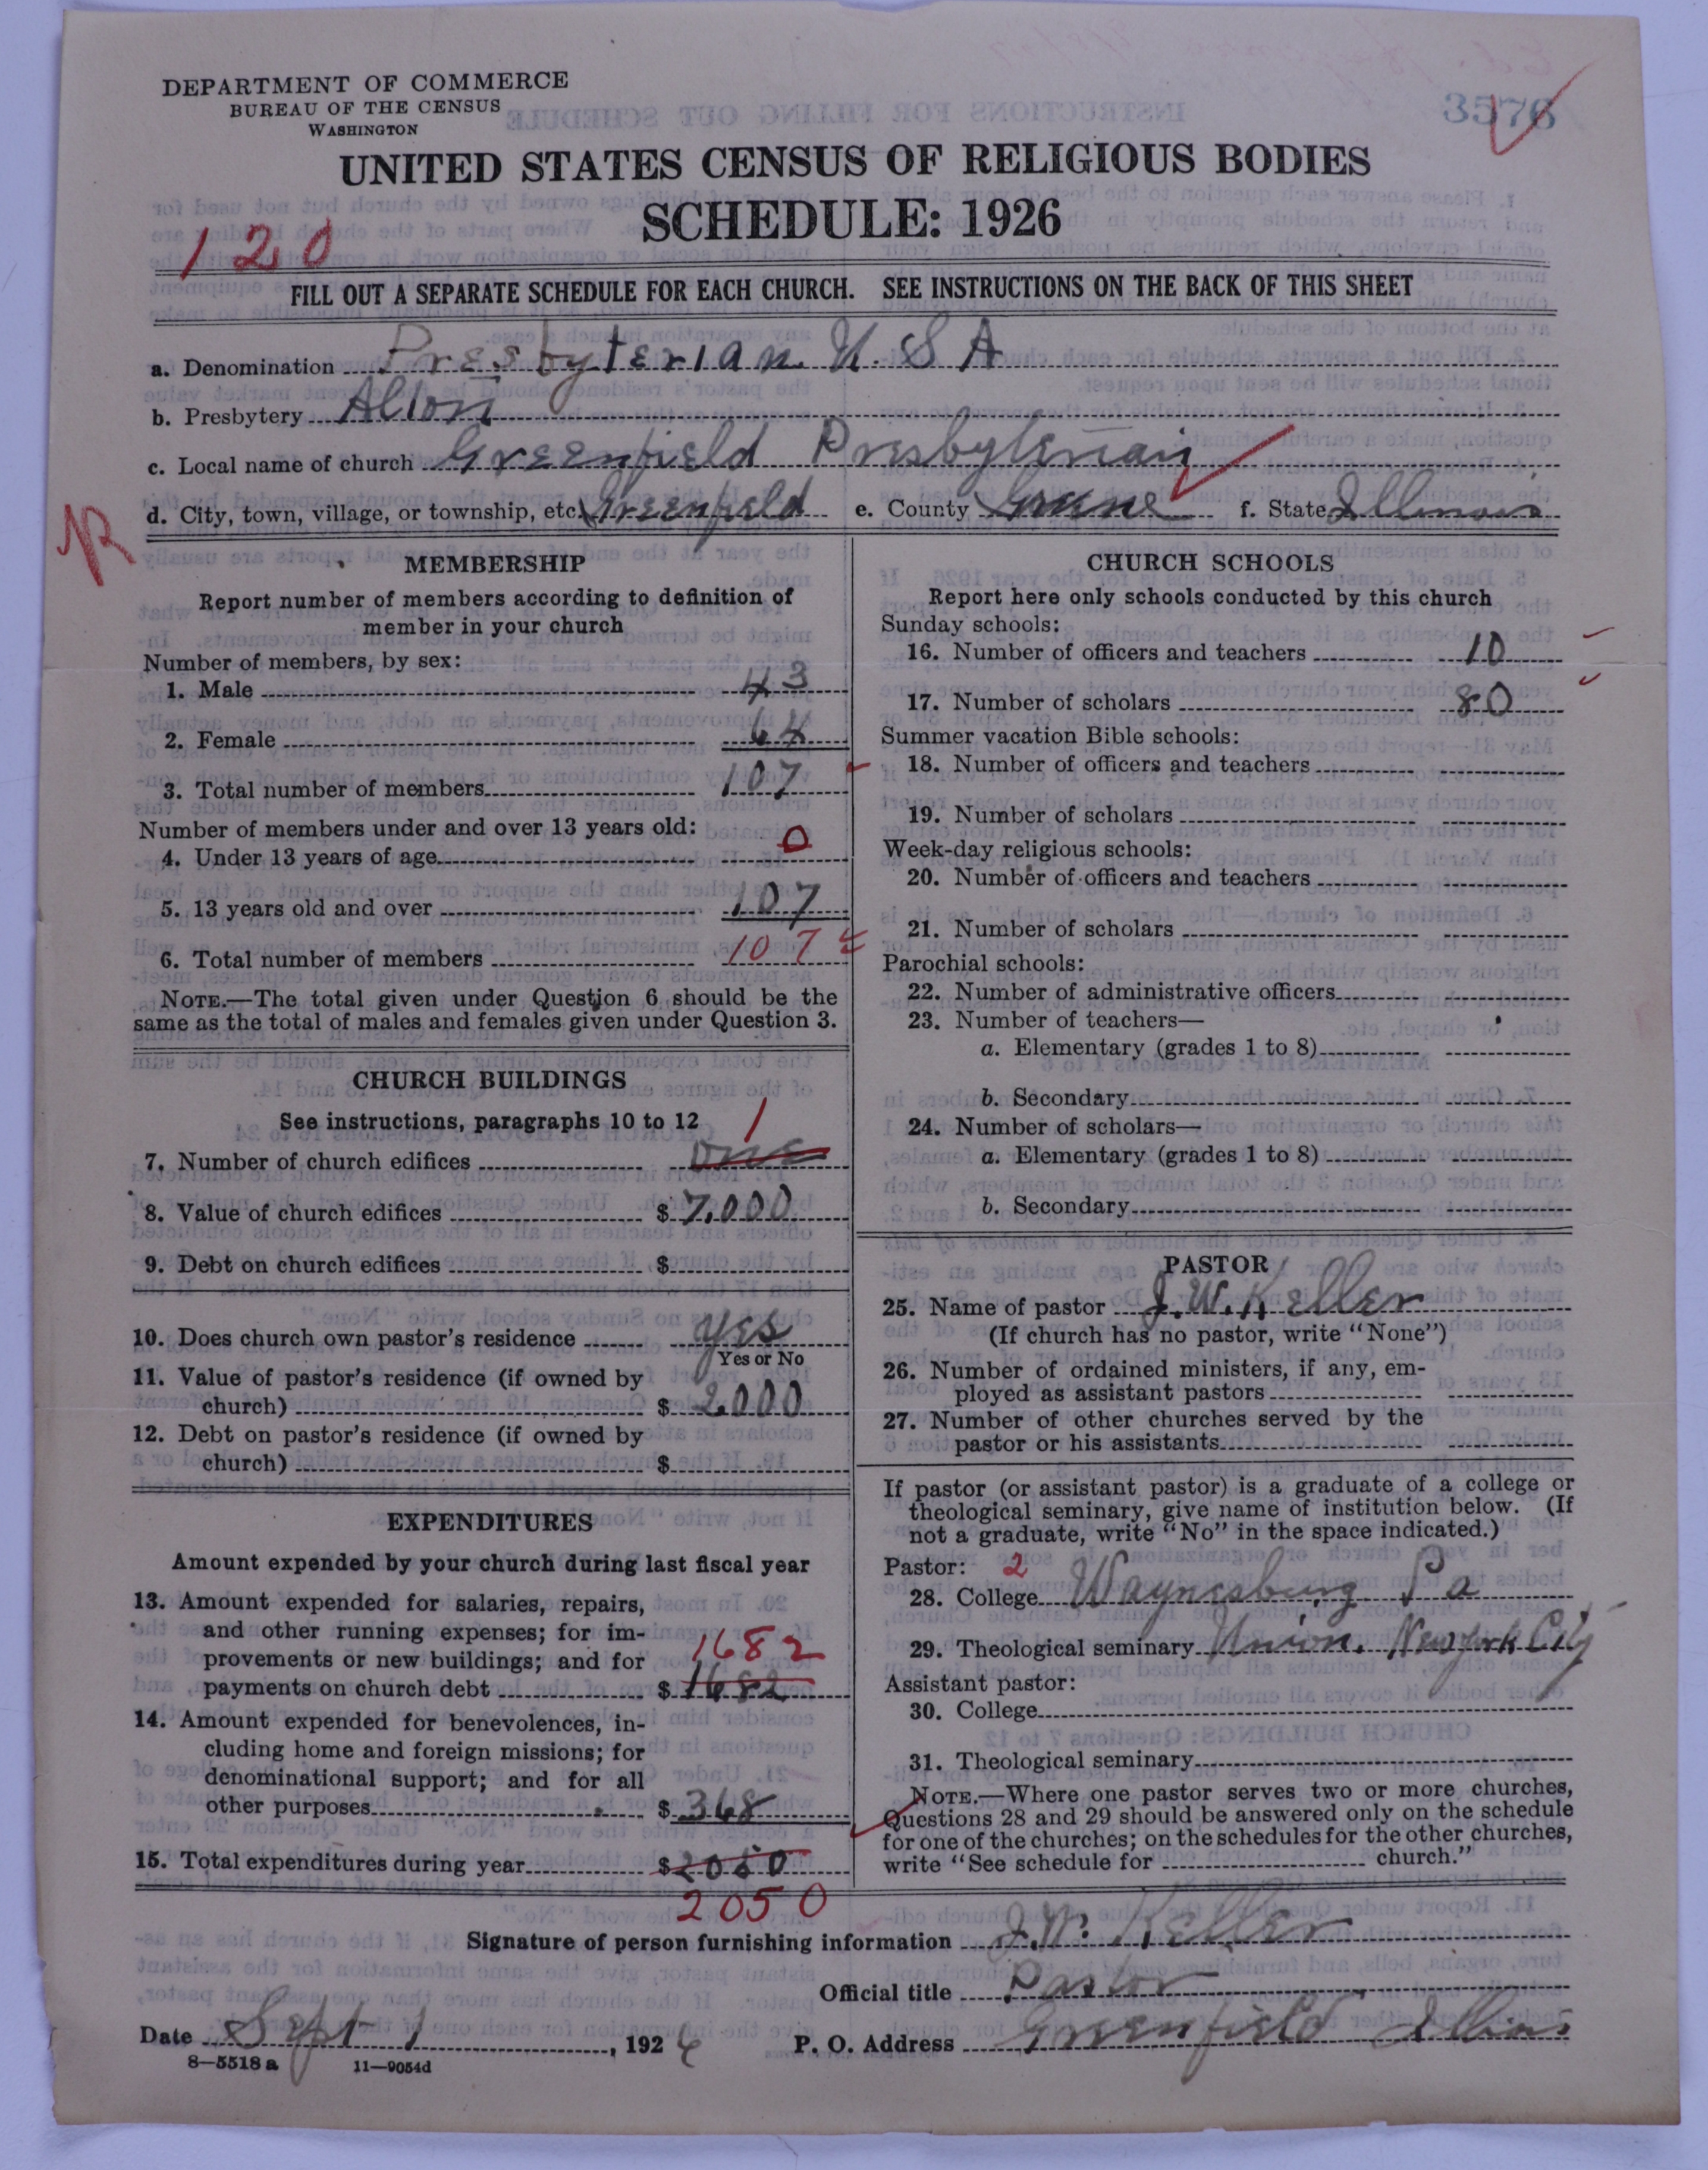 DEPARTMENT OF COMMERCE
BUREAU OF THE CENSUS
WASHINGTON
3576
UNITED STATES CENSUS OF RELIGIOUS BODIES
SCHEDULE: 1926
120
FILL OUT A SEPARATE SCHEDULE FOR EACH CHURCH. SEE INSTRUCTIONS ON THE BACK OF THIS SHEET
a. Denomination Presbyterian U.S.A
b. Presbytery Alton
c. Local name of church Greenfield Presbyterian
d. City, town, village, or township, etc. Greenfield e. County Greene f. State Illinois
R
MEMBERSHIP
Report number of members according to definition of
member in your church
Number of members, by sex:
1. Male 43
2. Female 64
3. Total number of members 107
Number of members under and over 13 years old:
4. Under 13 years of age 0
5. 13 years old and over 107
6. Total number of members 107
NOTE.—The total given under Question 6 should be the
same as the total of males and females given under Question 3.
CHURCH BUILDINGS
See instructions, paragraphs 10 to 12
1
7. Number of church edifices one
8. Value of church edifices $ 7,000
9. Debt on church edifices $
10. Does church own pastor's residence yes
Yes or No
11. Value of pastor's residence (if owned by
church) $ 2,000
12. Debt on pastor's residence (if owned by
church) $
EXPENDITURES
Amount expended by your church during last fiscal year
13. Amount expended for salaries, repairs,
and other running expenses; for im-
provements or new buildings; and for 1682
payments on church debt $ 1682
14. Amount expended for benevolences, in-
cluding home and foreign missions; for
denominational support; and for all
other purposes $ 368
15. Total expenditures during year $ 2050
2050
CHURCH SCHOOLS
Report here only schools conducted by this church
Sunday schools:
16. Number of officers and teachers 10
17. Number of scholars 80
Summer vacation Bible schools:
18. Number of officers and teachers
19. Number of scholars
Week-day religious schools:
20. Number of officers and teachers
21. Number of scholars
Parochial schools:
22. Number of administrative officers
23. Number of teachers—
a. Elementary (grades 1 to 8)
b. Secondary
24. Number of scholars—
a. Elementary (grades 1 to 8)
b. Secondary
PASTOR
25. Name of pastor J. W. Keller
(If church has no pastor, write "None")
26. Number of ordained ministers, if any, em-
ployed as assistant pastors
27. Number of other churches served by the
pastor or his assistants
If pastor (or assistant pastor) is a graduate of a college or
theological seminary, give name of institution below. (If
not a graduate, write "No" in the space indicated.)
Pastor: 2
28. College Waynesburg Pa
29. Theological seminary Union. New York City
Assistant pastor:
30. College
31. Theological seminary
NOTE.—Where one pastor serves two or more churches,
Questions 28 and 29 should be answered only on the schedule
for one of the churches; on the schedules for the other churches,
write "See schedule for church."
Signature of person furnishing information J. W. Keller
Official title Pastor
Date Sept 1, 1926 P. O. Address Greenfield Illinois
8—5518 a 11—9054d